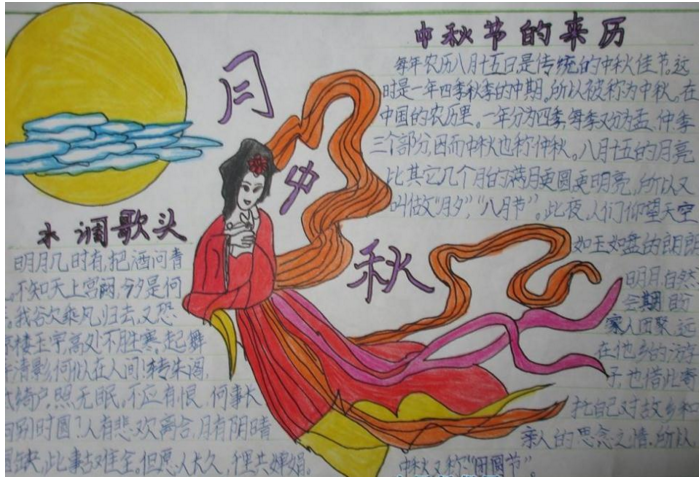 月
中
秋
中秋节的来历
每年农历八月十五日,是传统的中秋佳节。这
时是一年四季秋季的中期,所以被称为中秋。在
中国的农历里,一年分为四季,每季又分为孟、仲、季
三个部分,因而中秋也称仲秋。八月十五的月亮
比其它几个月的满月更圆,更明亮,所以又
叫做“月夕”,“八月节”。此夜,人们仰望天空
如玉如盘的朗朗
明月,自然
会期盼
家人团聚。远
在他乡的游
子,也借此寄
托自己对故乡和
亲人的思念之情。所以,
中秋又称“团圆节”
水调歌头
明月几时有,把酒问青
。不知天上宫阙,今夕是何
。我欲乘风归去,又恐
楼玉宇,高处不胜寒,起舞
清影,何似在人间!转朱阁,
绮户,照无眠。不应有恨,何事长
向别时圆?人有悲欢离合,月有阴晴
圆缺,此事古难全。但愿人长久,千里共婵娟。